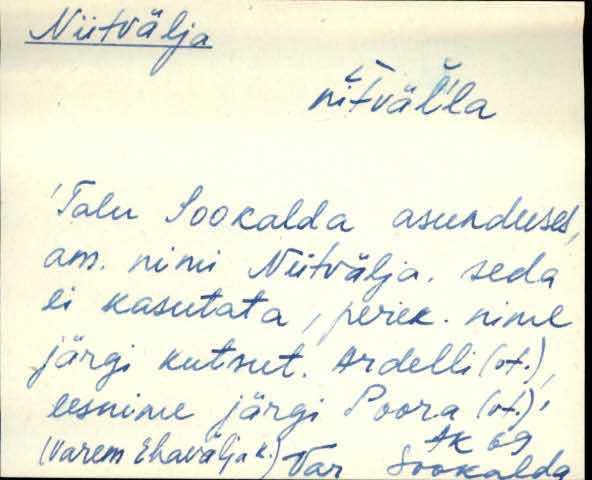 Niitvälja
nītväl̆'l̆a
'Talu Sookalda asunduses,
am. nimi Niitvälja. seda
ei kasutata, perek. nime
järgi kutsut. Ardelli (vt.),
eesnime järgi Poora (vt.)'
AK 69
(varem Ehavälja k.) Var Sookalda